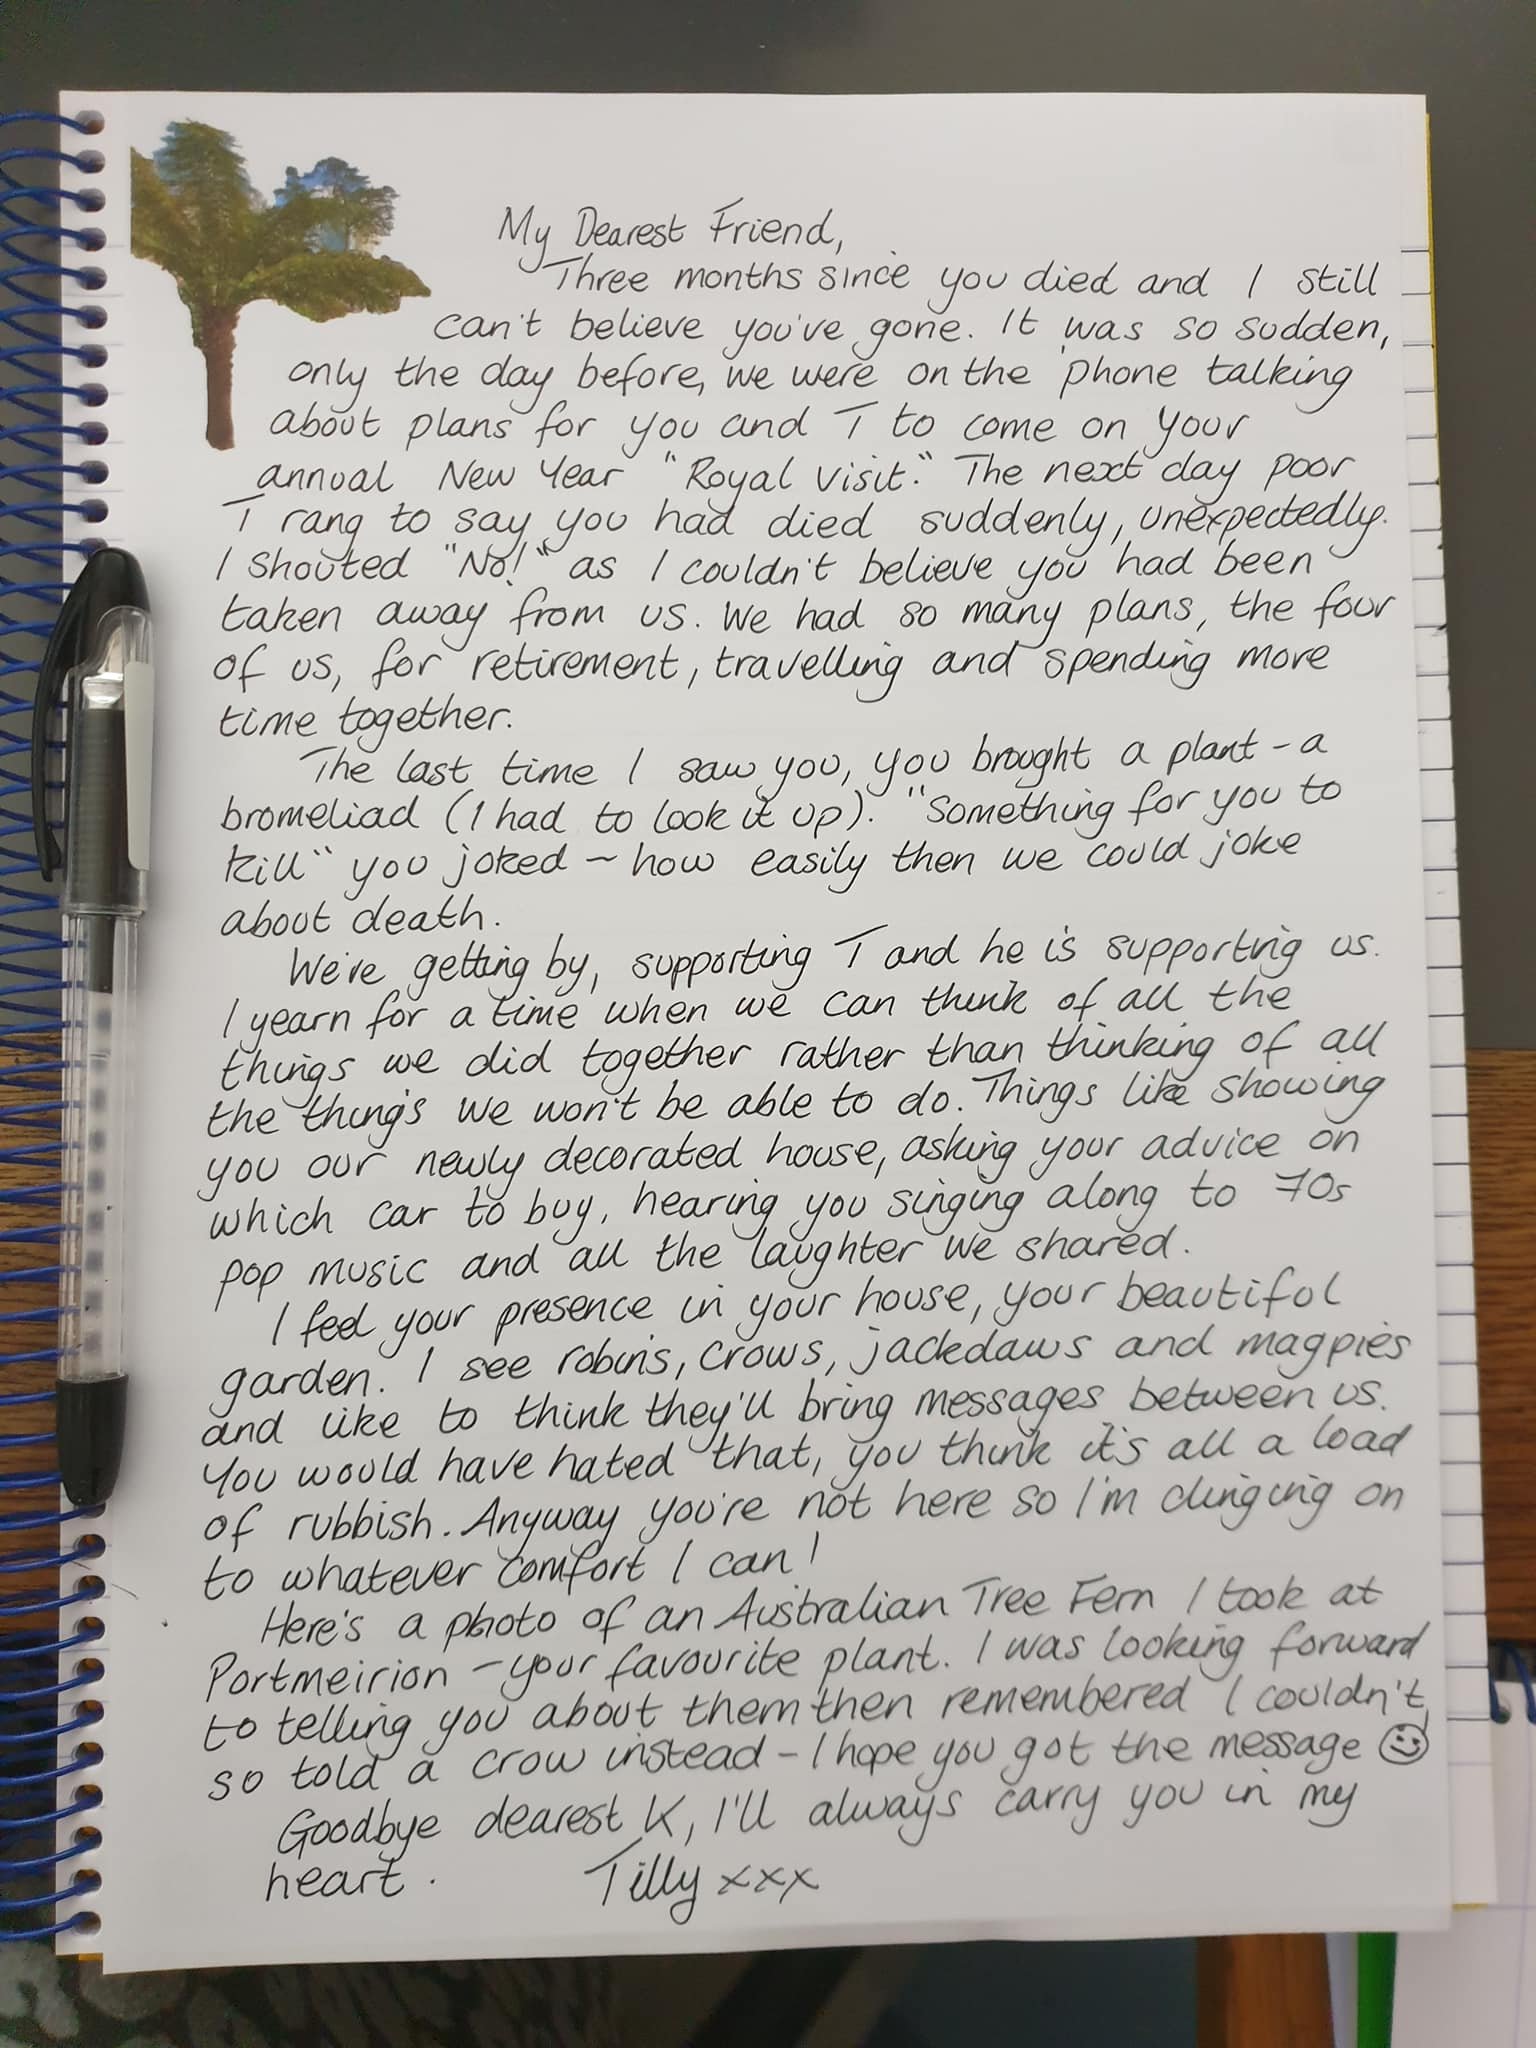 My Dearest Friend,
Three months since you died and I still
can't believe you've gone. It was so sudden,
only the day before, we were on the 'phone talking
about plans for you and T to come on your
annual New Year "Royal Visit". The next day poor
T rang to say you had died suddenly, unexpectedly.
I shouted "No!" as I couldn't believe you had been
taken away from us. We had so many plans, the four
of us, for retirement, travelling and spending more
time together.
The last time I saw you, you brought a plant - a
bromeliad (I had to look it up). "Something for you to
kill" you joked - how easily then we could joke
about death.
We're getting by, supporting T and he is supporting us.
I yearn for a time when we can think of all the
things we did together rather than thinking of all
the things we won't be able to do. Things like showing
you our newly decorated house, asking your advice on
which car to buy, hearing you singing along to 70s
pop music and all the laughter we shared.
I feel your presence in your house, your beautiful
garden. I see robins, crows, jackdaws and magpies
and like to think they'll bring messages between us.
You would have hated that, you think it's all a load
of rubbish. Anyway you're not here so I'm clinging on
to whatever comfort I can!
Here's a photo of an Australian Tree Fern I took at
Portmeirion - your favourite plant. I was looking forward
to telling you about them then remembered I couldn't,
so told a crow instead - I hope you got the message ☺
Goodbye dearest K, I'll always carry you in my
heart. Tilly xxx